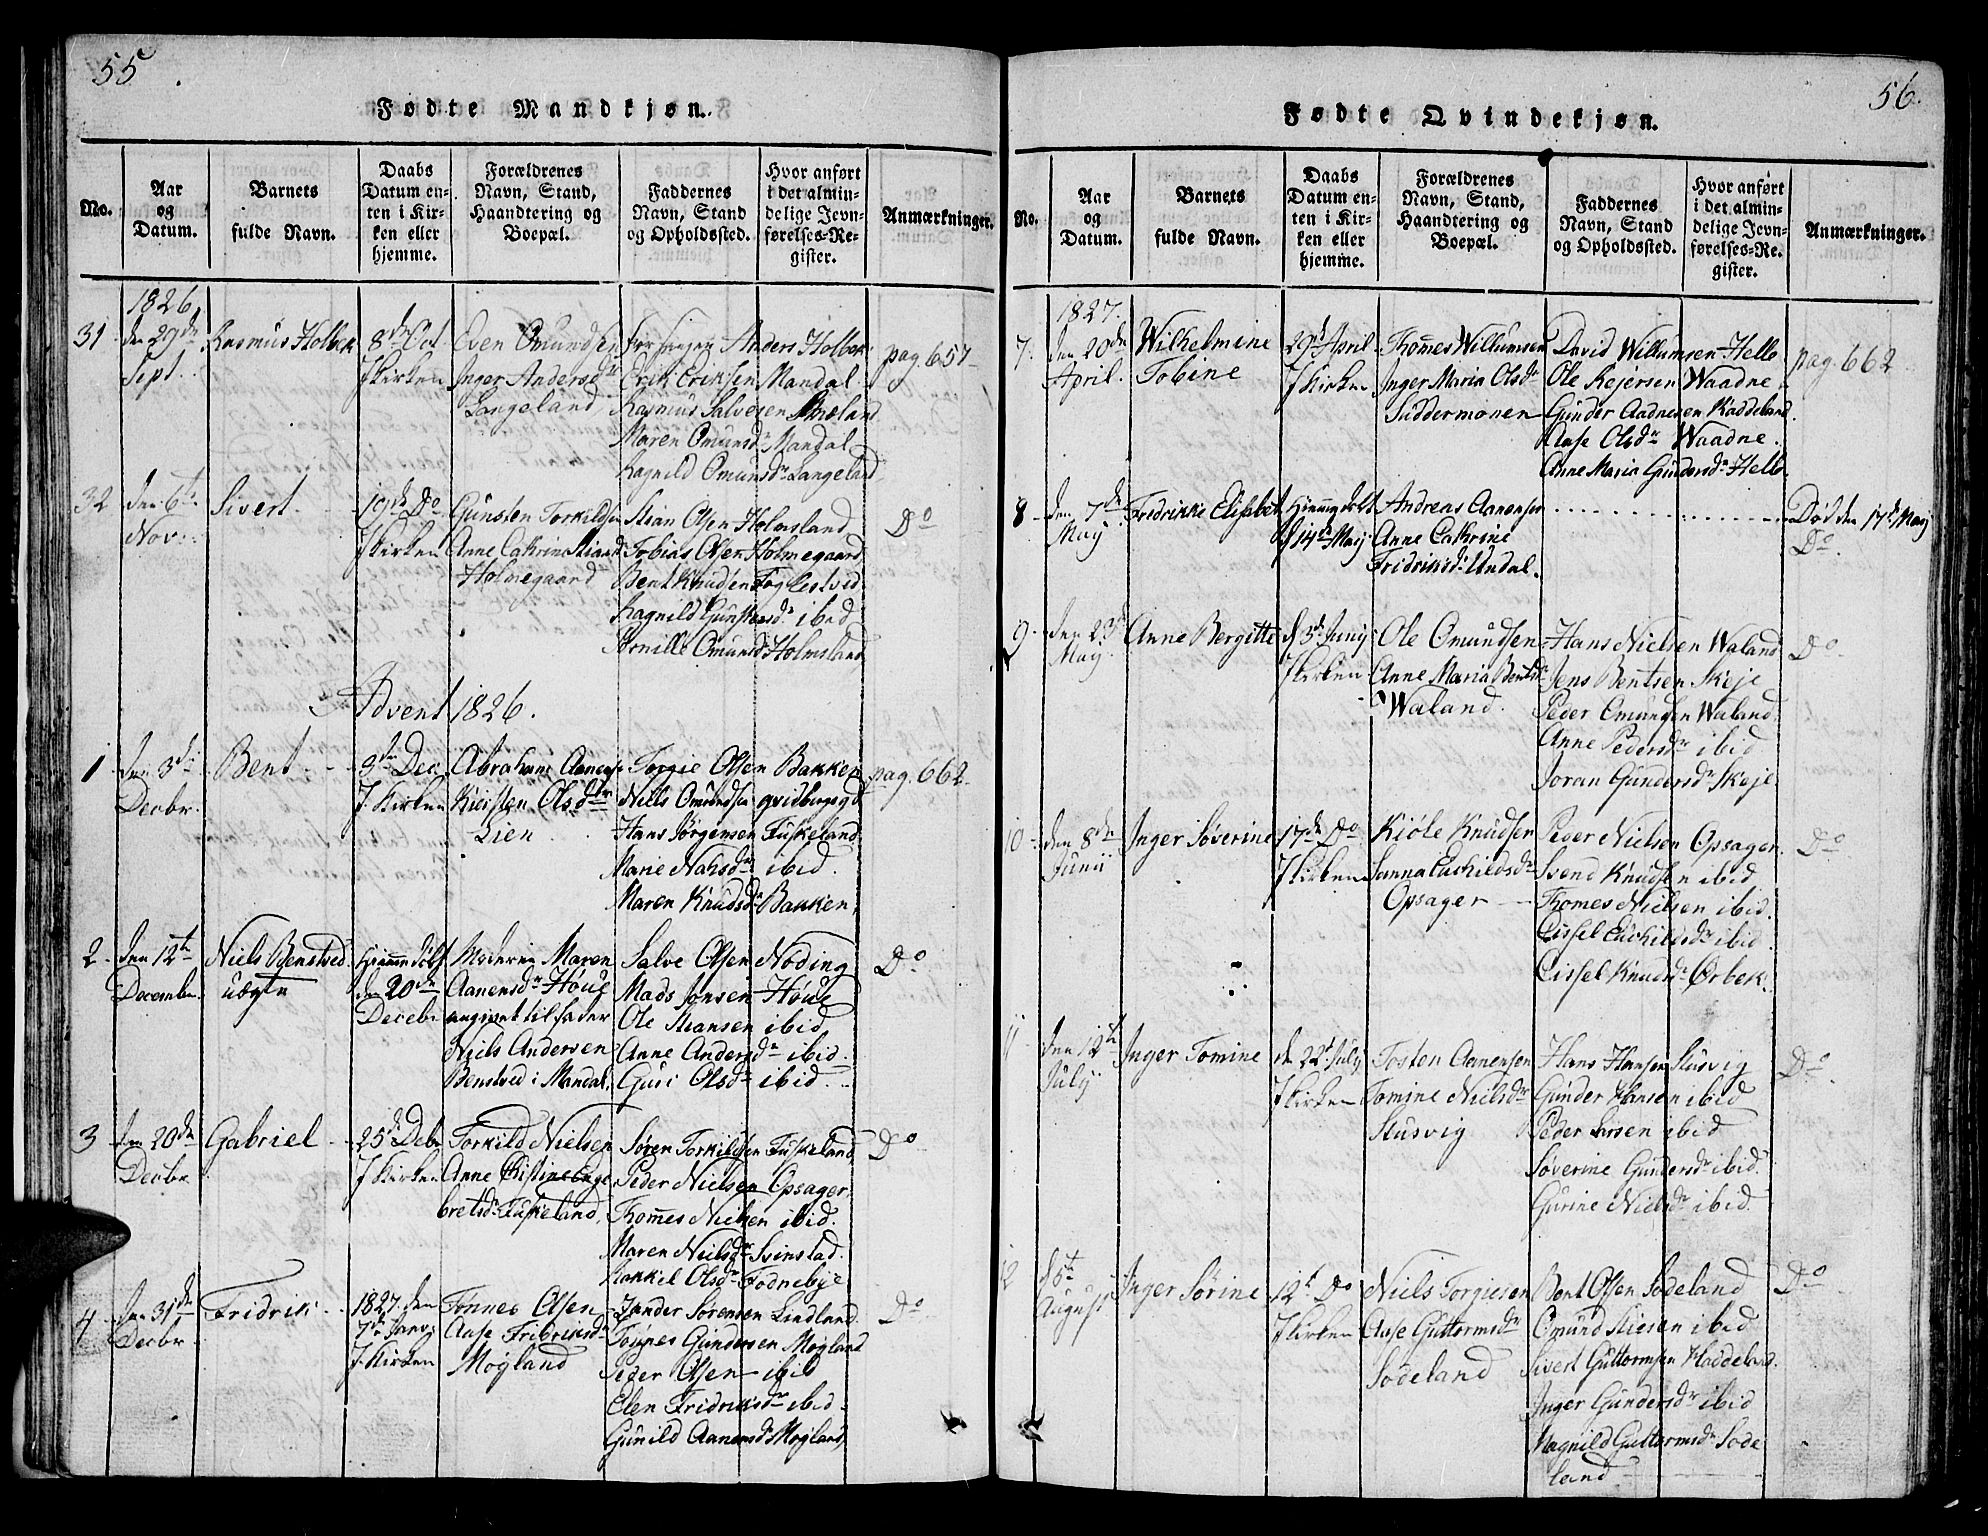 55
Fødte Mandkjøn.
No.
Aar
og
Datum.
Barnets
fulde Navn.
Daabs
Datum en-
ten i Kir-
ken eller
hjemme.
Forældrenes
Navn, Stand,
Haandtering og
Boepæl.
Faddernes
Navn, Stand
og Opholdssted.
Hvor anført
i det almin-
delige Jevn-
førelses-Re-
gister.
Anmærkninger.
1826
31
den 29de
Sept.
Rasmus Holbek
8de Oct.
I Kirken
Even Omundsen
Inger Andersdr
Langeland
Anders Holbek
Erik Eriksen Mandal
Rasmus Salvesen
Maren Omunsdr Mandal
Ragnild Omunsdr Langeland
pag. 657
32
den 6te
Nov.
Sivert
19de Do
I Kirken
Gunsten Torkildsen
Anne Cathrine
Holmegaard
Stian Olsen Holmsland
Tobias Olsen Holmegaard
Bent Knudsen
Ragnild Gunstensdr ibid
Pernille Omunsdr Holmsland
Do
Advent 1826.
1
den 3die
Decbr.
Bent
8de Dec.
I Kirken
Abraham Aanensen
Kiersten Olsdtr
Lien
Torgie Olsen Bakken
Niels Omundsen
Hans Jørgensen Fuskeland
Marie Nahsdr ibid.
Maren Knudsdr Bakken
pag. 662
2
den 12te
December
Niels Benstved
uægte
Hjemme døbt
den 20de
Decebr
Moderen Maren
Aanensdr Høue
angivet til fader
Niels Andersen
Benstved i Mandal
Salve Olsen Nøding
Mads Jonsen Høue
Ole Stiansen ibid
Anne Andersdr ibid
Guri Olsdr ibid.
Do
3
den 20de
Decbr.
Gabriel
25de Debr
I Kirken
Torkild Nielsen
Anne Christine Enge
bretsdr Fuskeland
Søren Torkildsen Fuskeland
Peder Nielsen Opsager
Thomes Nielsen ibid.
Maren Nielsdr Svinstad.
Rakkel Olsdr Fodnebye
Do
4
den 31de
Decbr.
Fridrik
1827 den
7de Janv.
I Kirken
Tønnes Olsen
Aase Fridriksdr
Møgland
Zander Sørensen Lindland
Tønnes Gundersen Møgland
Peder Olsen ibid
Elen Fridriksdr ibid
Gunild Aanensdr Møgland
Do
56.
Fødte Qvindekjøn.
No.
Aar
og
Datum.
Barnets
fulde Navn.
Daabs
Datum en-
ten i Kir-
ken eller
hjemme.
Forældrenes
Navn, Stand,
Haandtering og
Boepæl.
Faddernes
Navn, Stand
og Opholdssted.
Hvor anført
i det almin-
delige Jevn-
førelses-Re-
gister.
Anmærkninger.
1827.
7.
den 20de
April.
Wilhelmine
Tobine
29de April
I Kirken
Thomes Willumsen
Inger Maria Olsdr
Suddermonen
David Willumsen Helle
Ole Rejersen Waadne
Gunder Aadnesen Kaddeland.
Aase Olsdr Waadne.
Anne Maria Gundersdr Helle.
pag. 662
8
den 7de
May
Fridrikke Elisabet
Hjemmedøbt
d 14de May
Andreas Aanensen
Anne Cathrine
Fridriksdr Undal.
Død den 17de May
Do.
9
den 23de
May
Anne Bergitte
d 5te Junij
I Kirken
Ole Omundsen
Anne Maria Bentsdr
Waland.
Hans Nielsen Waland
Jens Bentsen Skeje
Peder Omunsen Waland.
Anne Pedersdr ibid
Joran Gundersdr Skeje
Do
10
den 8de
Junii
Inger Søverine
17de Do
I Kirken
Kiøle Knudsen
Sanna Euchildsdr
Opsager
Peder Nielsen Opsager.
Svend Knudsen ibid
Thomes Nielsen ibid.
Cissel Euchildsdr ibid.
Cissel Knudsdr Ørbek.
Do
11
den 12te
Julij
Inger Tomine
den 22de July
I Kirken
Tosten Aanensen
Tomine Nielsdr
Slusvig
Hans Hansen Slusvig
Gunder Hansen ibid
Peder Larsen ibid
Søverine Gundersdr ibid.
Gurine Nielsdr ibid.
Do
12
d 5te
August
Inger Sørine
12te Do
I Kirken
Niels Torgiesen
Aase Guttormsdr
Sodeland
Bent Olsen Sodeland
Omund Stiesen ibid
Sivert Guttormsen Haddeland.
Inger Gundersdr ibid
Magnild Guttormsdr Sode
land
Do